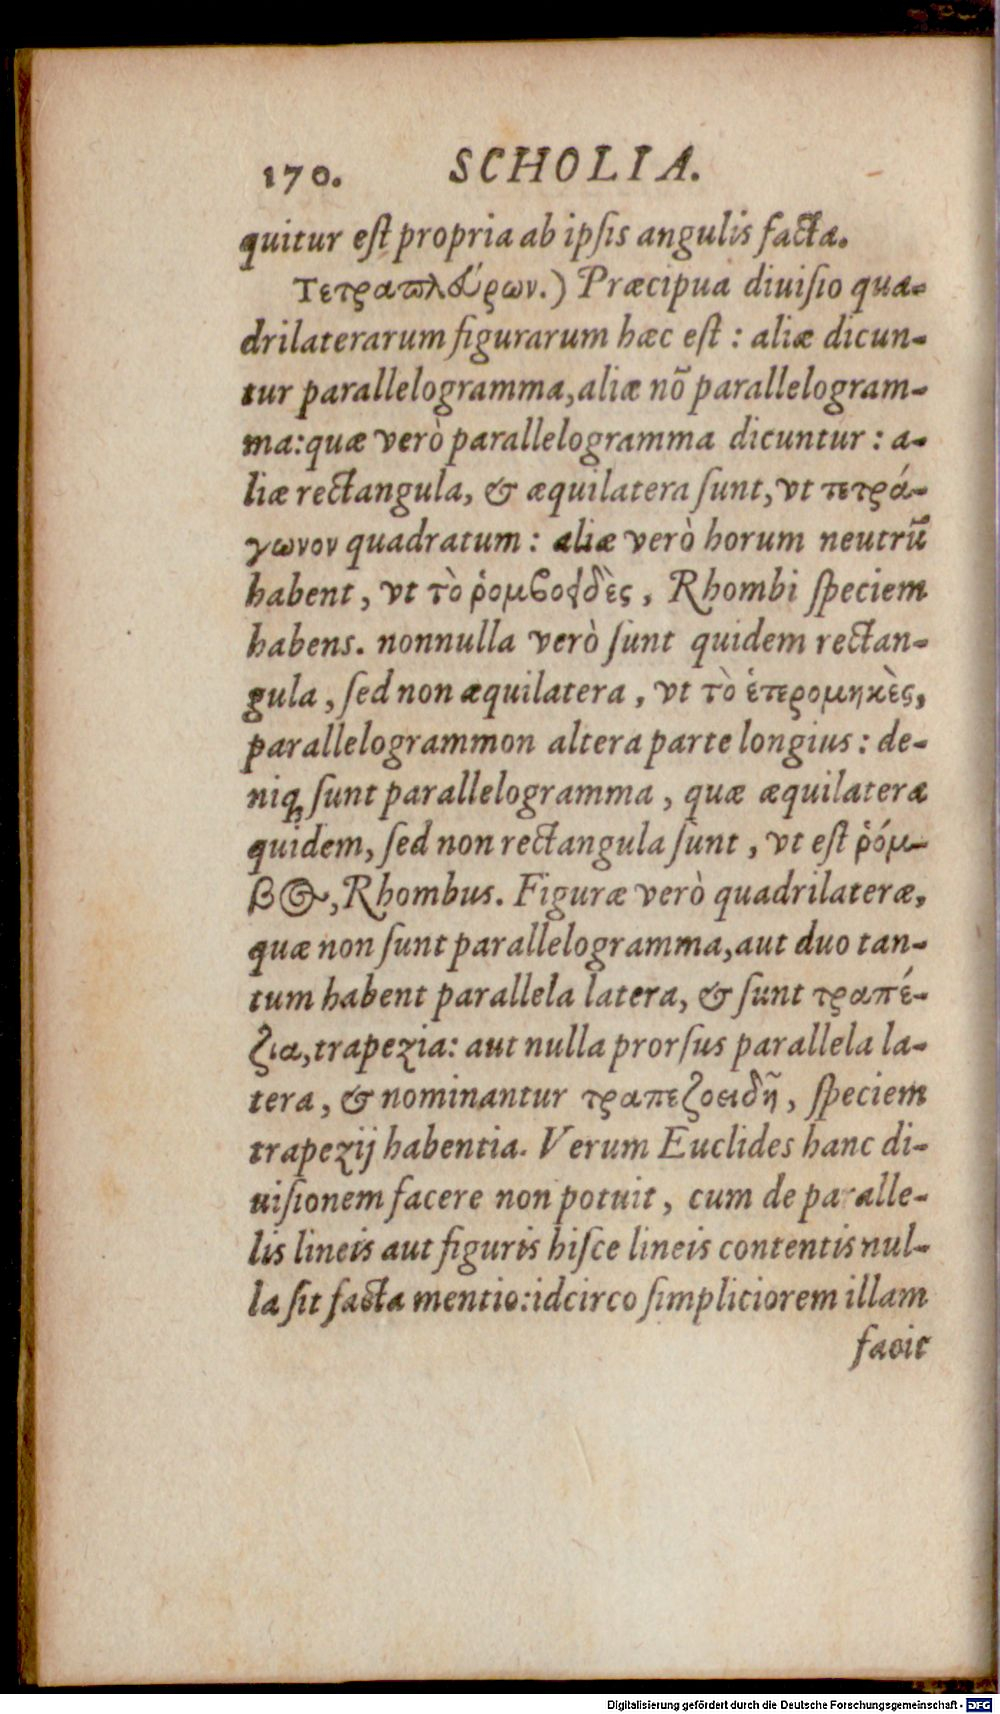 170. SCHOLIA.
quitur est propria ab ipsis angulis facta.
Τετραπλεύρων.) Præcipua diuisio qua-
drilaterarum figurarum hæc est : aliæ dicun-
tur parallelogramma, aliæ nō parallelogram-
ma: quæ verò parallelogramma dicuntur : a-
liæ rectangula, & æquilatera sunt, vt τετρά-
γωνον quadratum : aliæ verò horum neutrū
habent, vt τὸ ῥομβοειδὲς, Rhombi speciem
habens. nonnulla verò sunt quidem rectan-
gula, sed non æquilatera, vt τὸ ἑτερομηκὲς,
parallelogrammon altera parte longius : de-
niq; sunt parallelogramma, quæ æquilatera
quidem, sed non rectangula sunt, vt est ῥόμ-
βος, Rhombus. Figuræ verò quadrilateræ,
quæ non sunt parallelogramma, aut duo tan-
tum habent parallela latera, & sunt τραπέ-
ζια, trapezia: aut nulla prorsus parallela la-
tera, & nominantur τραπεζοειδῆ, speciem
trapezij habentia. Verum Euclides hanc di-
uisionem facere non potuit, cum de paralle-
lis lineis aut figuris hisce lineis contentis nul-
la sit facta mentio: idcirco simpliciorem illam
facit
Digitalisierung gefördert durch die Deutsche Forschungsgemeinschaft - DFG